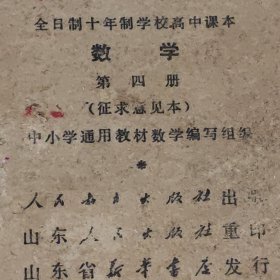 全日制十年制学校高中课本
数学
第四册
(征求意见本)
中小学通用教材数学编写组编
*
人民教育出版社出版
山东人民出版社重印
山东省新华书店发行